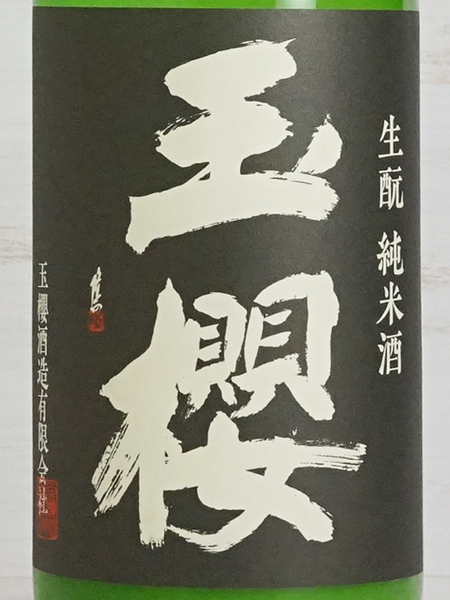 生酛 純米酒
玉櫻
玉櫻酒造有限会社